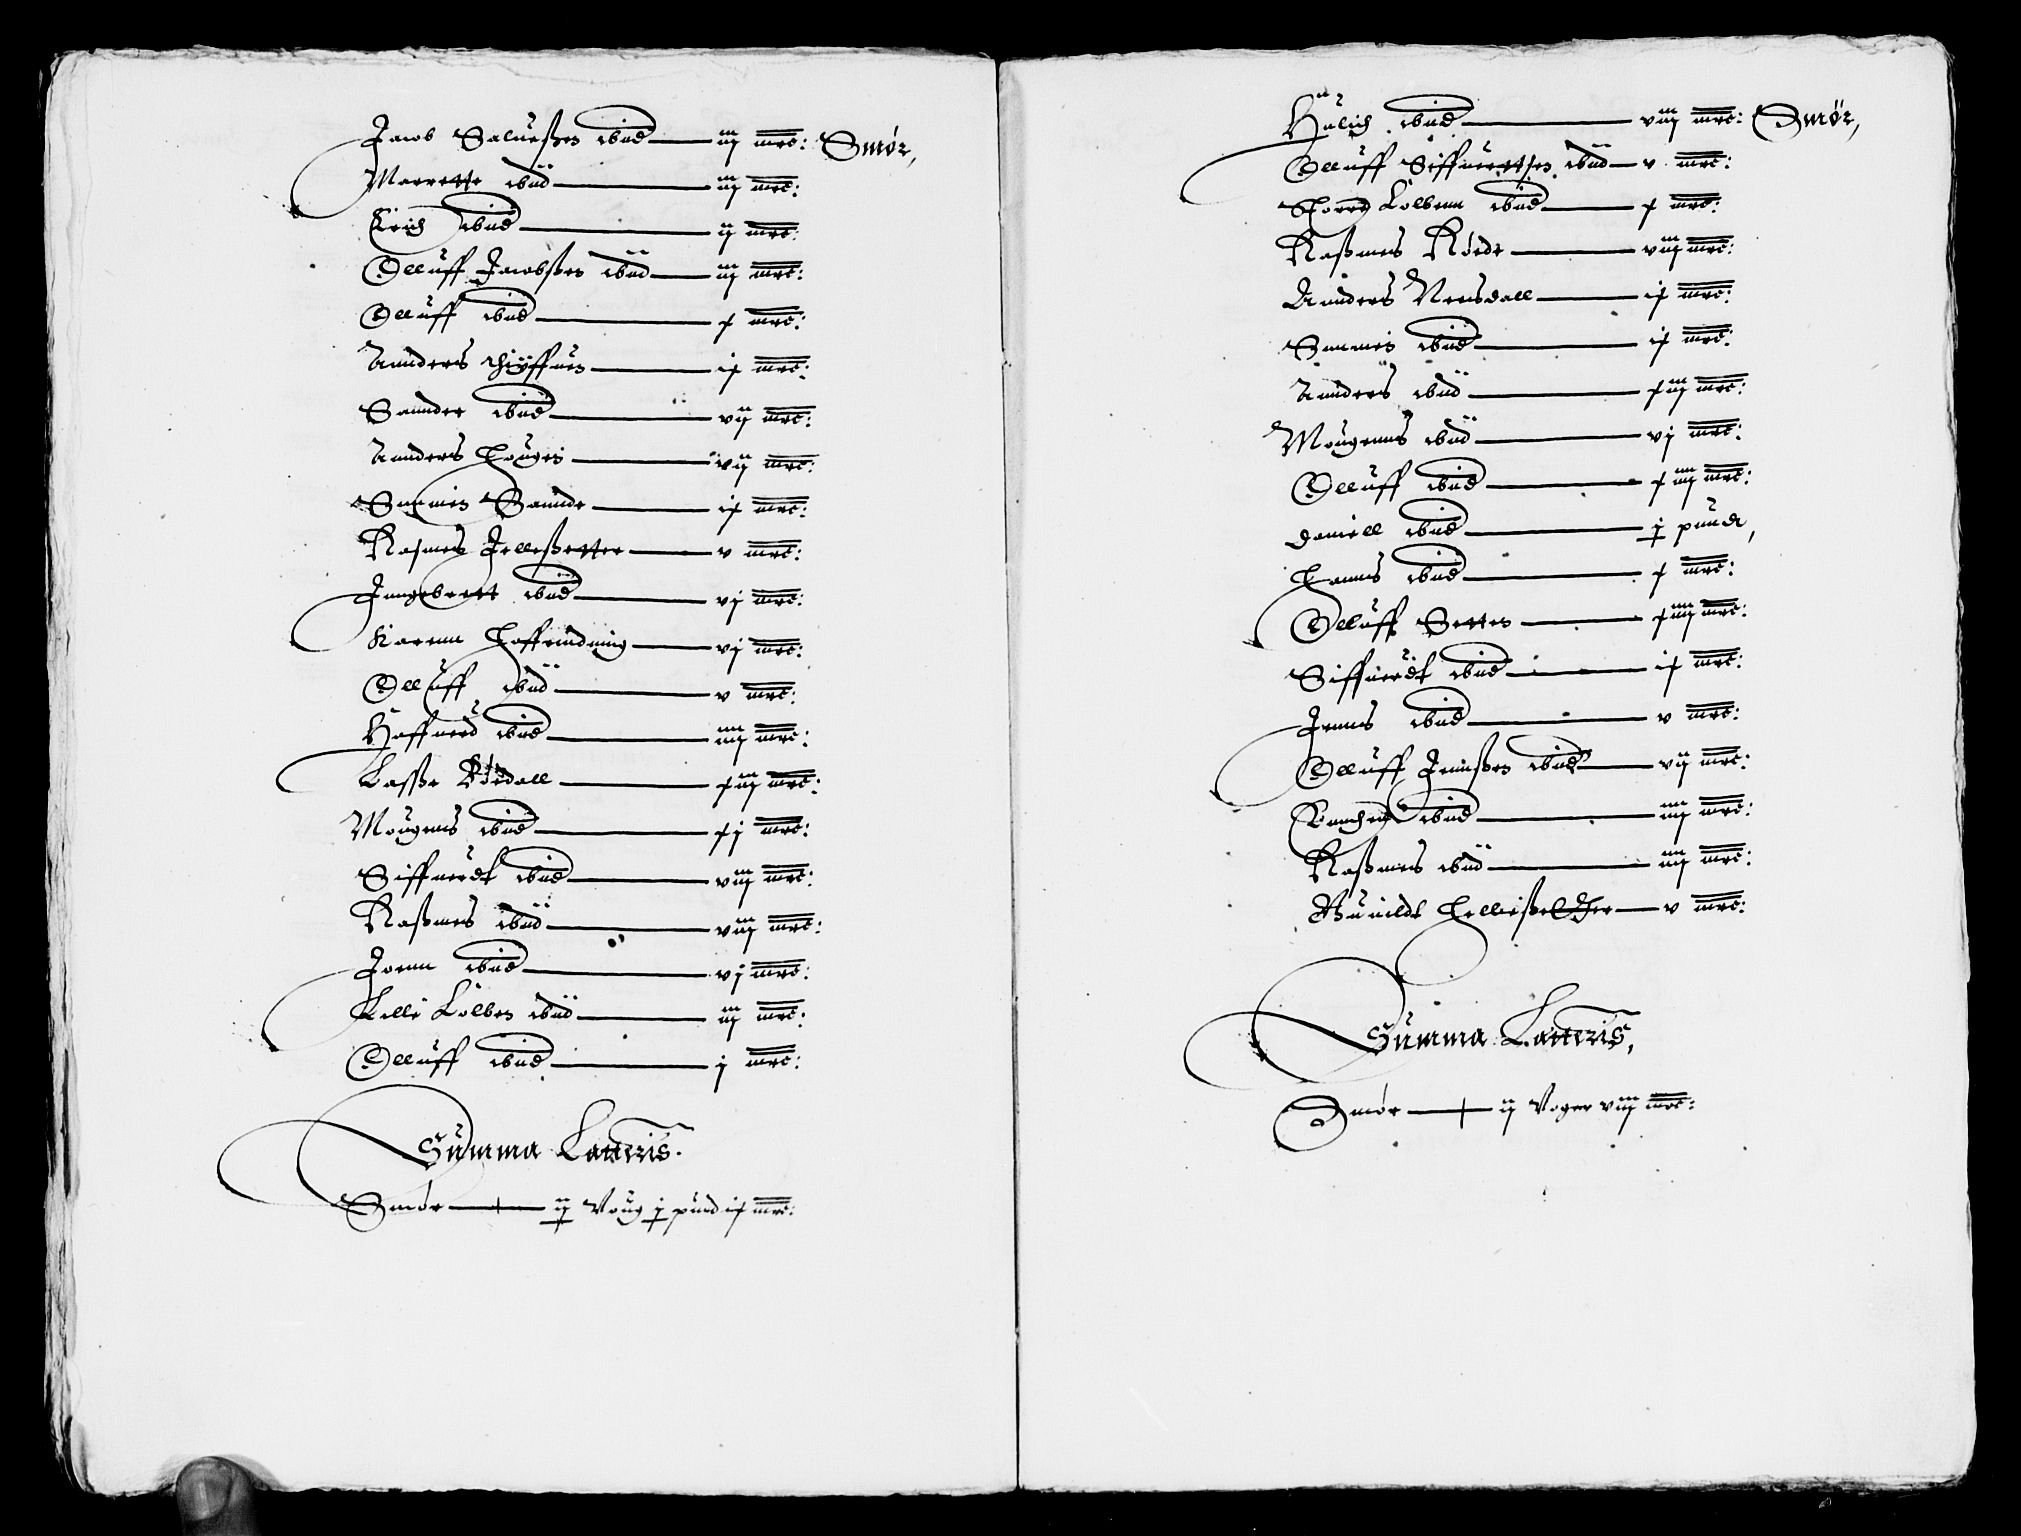 Jacob Salueßen ibid iij mrc: Smør,
Marrette ibid iij mrc:
Erich ibid ij mrc:
Olluff Jacobßen ibid iij mrc:
Olluff ibid x mrc:
Annders ix mrc:
Sannder ibid vij mrc:
Annders Houges vij mrc:
Simmen Sannde ix mrc:
Rasmus v mrc:
Jngebrett ibid vj mrc:
Karenn vj mrc:
Olluff ibid v mrc:
Haffuord ibid iiij mrc:
Lasße Rørdall xiij mrc:
Mougens ibid xj mrc:
Siffuerdt ibid viij mrc:
Raßmus ibid viij mrc:
Joenn ibid vj mrc:
Lille Kolben ibid iij mrc:
Olluff ibid j mrc:
Summa Latteris.
Smør ij Voug j pund ix mrc:
ibid viij mrc: Smør,
Olluff Siffuerttsen ibid v mrc:
Kolbenn ibid x mrc:
Raßmus Røede viij mrc:
Annders ix mrc:
Simmen ibid ix mrc:
Annders ibid xiij mrc:
Mougenns ibid vj mrc:
Olluff ibid xiiij mrc:
Daniell ibid j pundt,
Hanns ibid x mrc:
Olluff Setten xiiij mrc:
Siffuerdt ibid ix mrc:
Jenns ibid v mrc:
Olluff Jennßen ibid vij mrc:
ibid iiij mrc:
Raßmus ibid iiij mrc:
Gunild v mrc:
Summa Latteris,
Smør ij Voger viij mrc: